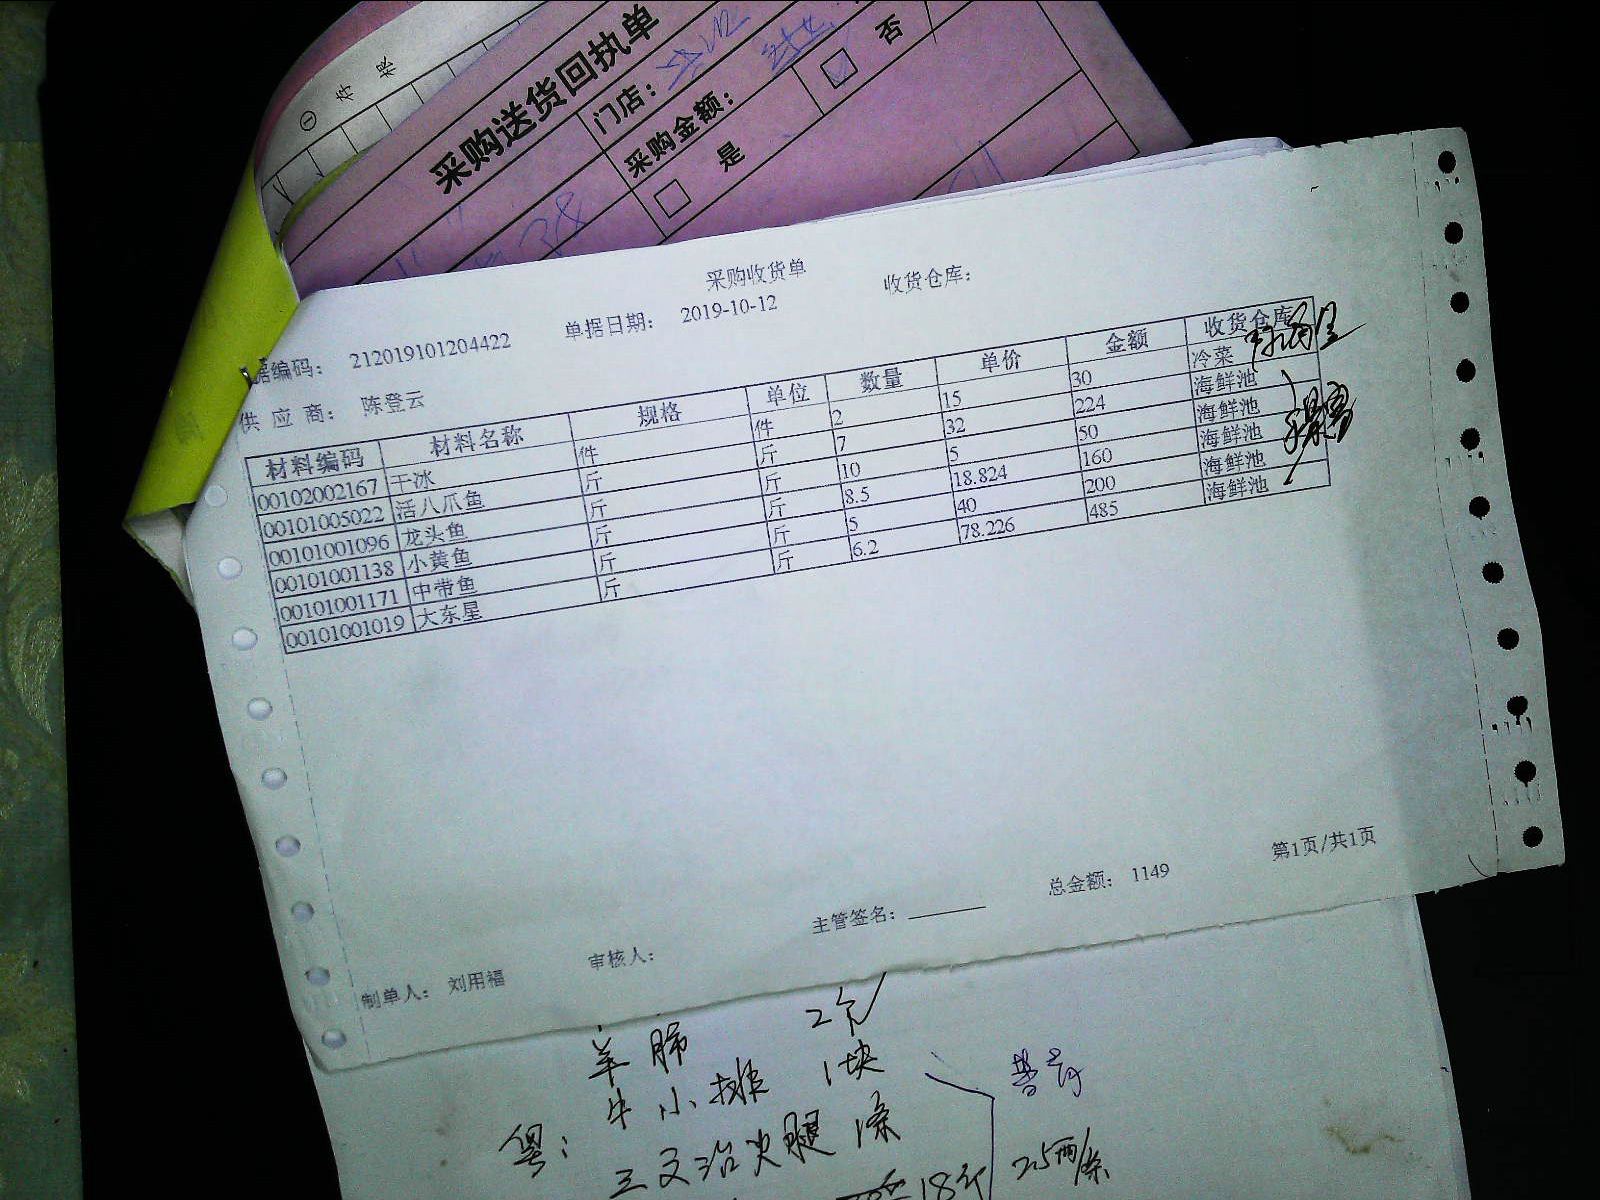 ① 存根
采购送货回执单
门店：
采购金额：
是 否
采购收货单
据编码： 212019101204422 单据日期： 2019-10-12 收货仓库：
供应商： 陈登云
材料编码 材料名称 规格 单位 数量 单价 金额 收货仓库
00102002167 干冰 件 件 2 15 30 冷菜
00101005022 活八爪鱼 斤 斤 7 32 224 海鲜池
00101001096 龙头鱼 斤 斤 10 5 50 海鲜池
00101001138 小黄鱼 斤 斤 8.5 18.824 160 海鲜池
00101001171 中带鱼 斤 斤 5 40 200 海鲜池
00101001019 大东星 斤 斤 6.2 78.226 485 海鲜池
制单人： 刘用福 审核人： 主管签名： 总金额： 1149 第1页/共1页
羊肺 2个
牛小排 1块
粤： 三文治火腿 1条
18斤 2.5两/条